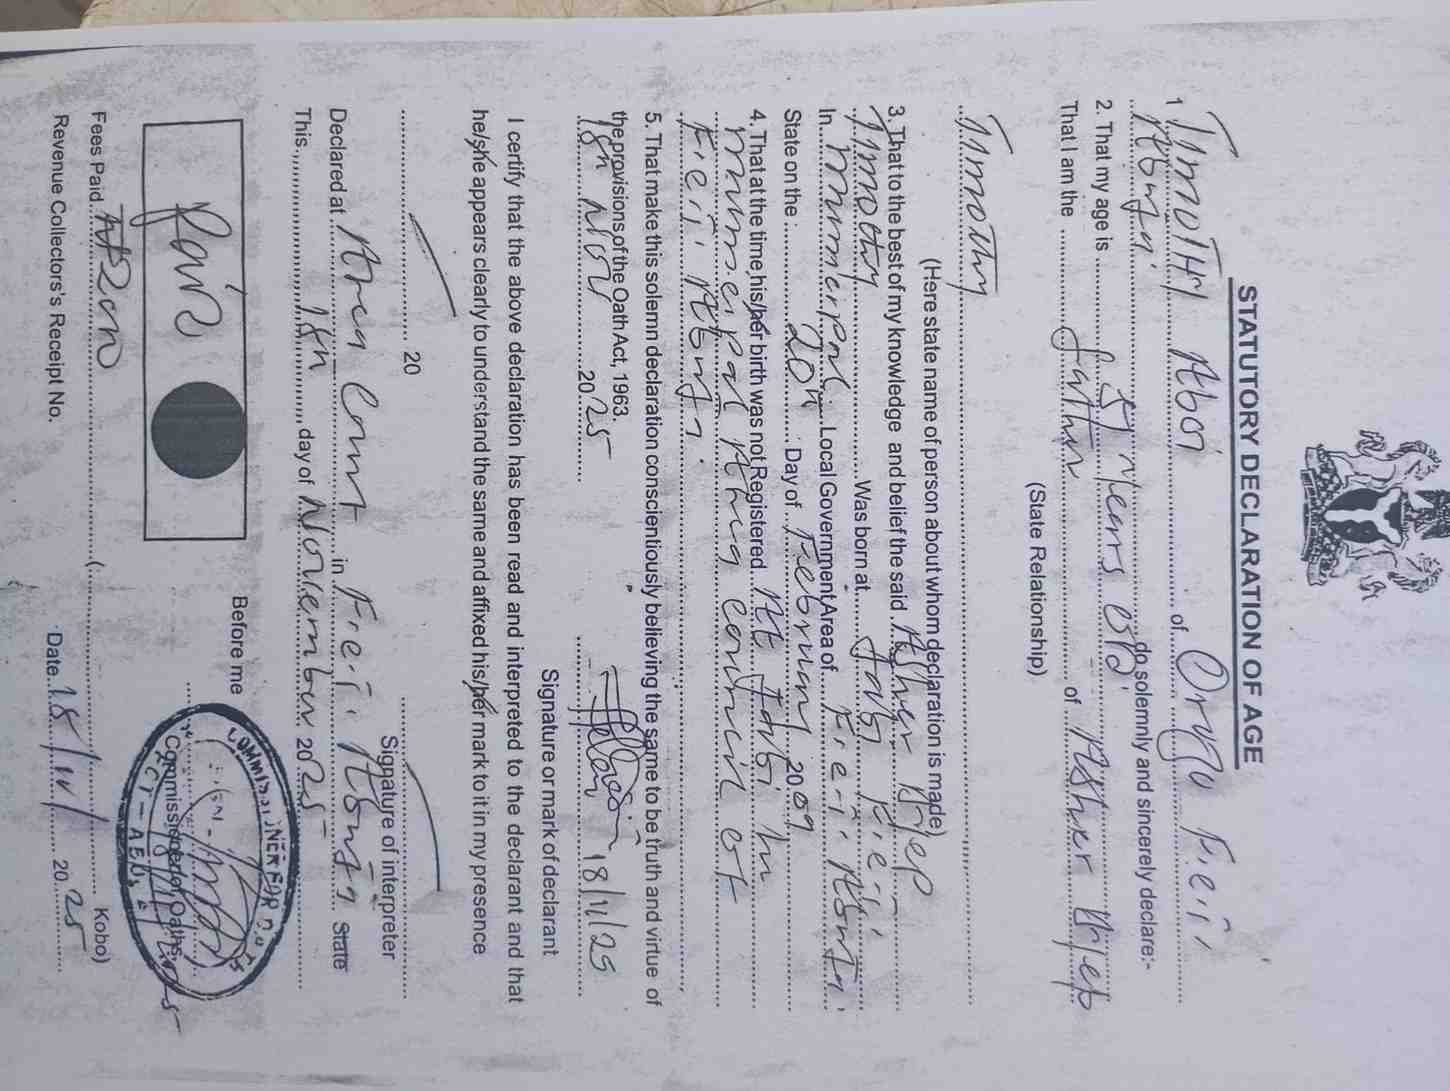 STATUTORY DECLARATION OF AGE
1 TIMOTHY Aboi of Orozo F.C.T.
Abuja do solemnly and sincerely declare:-
2. That my age is 57 Years old
That I am the father of Asher
(State Relationship)
Timothy
(Here state name of person about whom declaration is made)
3. That to the best of my knowledge and belief the said Asher
Timothy Was born at F.C.T.
In Municipal Local Government Area of F.C.T. Abuja.
State on the: 20th Day of February 2009
4. That at the time his/her birth was not Registered At
Municipal Area council of
F.C.T. Abuja.
5. That make this solemn declaration conscientiously believing the same to be truth and virtue of
the provisions of the Oath Act, 1963.
18th Nov 2025 18/11/25
Signature or mark of declarant
I certify that the above declaration has been read and interpreted to the declarant and that
he/she appears clearly to understand the same and affixed his/her mark to it in my presence
20
Signature of interpreter
Declared at Area Court in F.C.T. Abuja State
This 18th day of November 2025
Before me
COMMISSIONER FOR OATHS
Commissioner of Oaths
FCT-ABUJA
Fees Paid ( Kobo)
Revenue Collectors's Receipt No. Date 18/11/ 2025